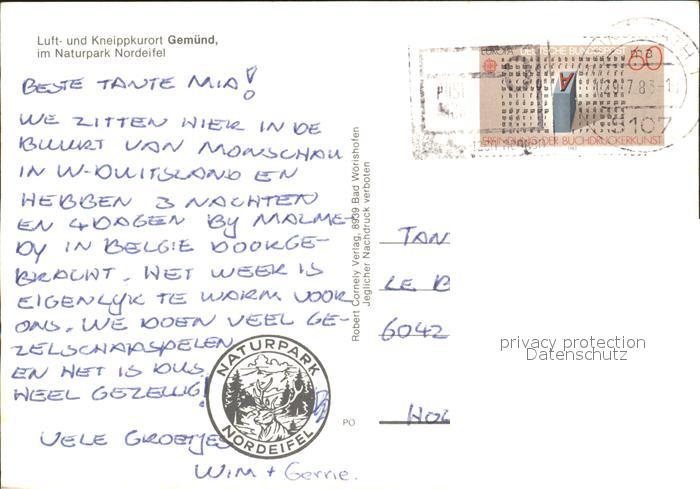 Luft- und Kneippkurort Gemünd,
im Naturpark Nordeifel
BESTE TANTE MIA!
WE ZITTEN HIER IN DE
BUURT VAN MONSCHAU
IN W-DUITSLAND EN
HEBBEN 3 NACHTEN
EN 4 DAGEN BY MALME-
DY IN BELGIE DOORGE-
BRACHT. HET WEER IS
EIGENLYK TE WARM VOOR
ONS. WE DOEN VEEL GE-
ZELSCHAPSPELEN
EN HET IS DUS
HEEL GEZELLIG!
VELE GROETJES
WIM + Gerrie.
NATURPARK
NORDEIFEL
Robert Cornely Verlag, 8939 Bad Wörishofen
Jeglicher Nachdruck verboten
PO
EUROPA DEUTSCHE BUNDESPOST 60
DER BUCHDRUCKERKUNST
7.83
107
TAN
LE B
6042
HOL
privacy protection
Datenschutz